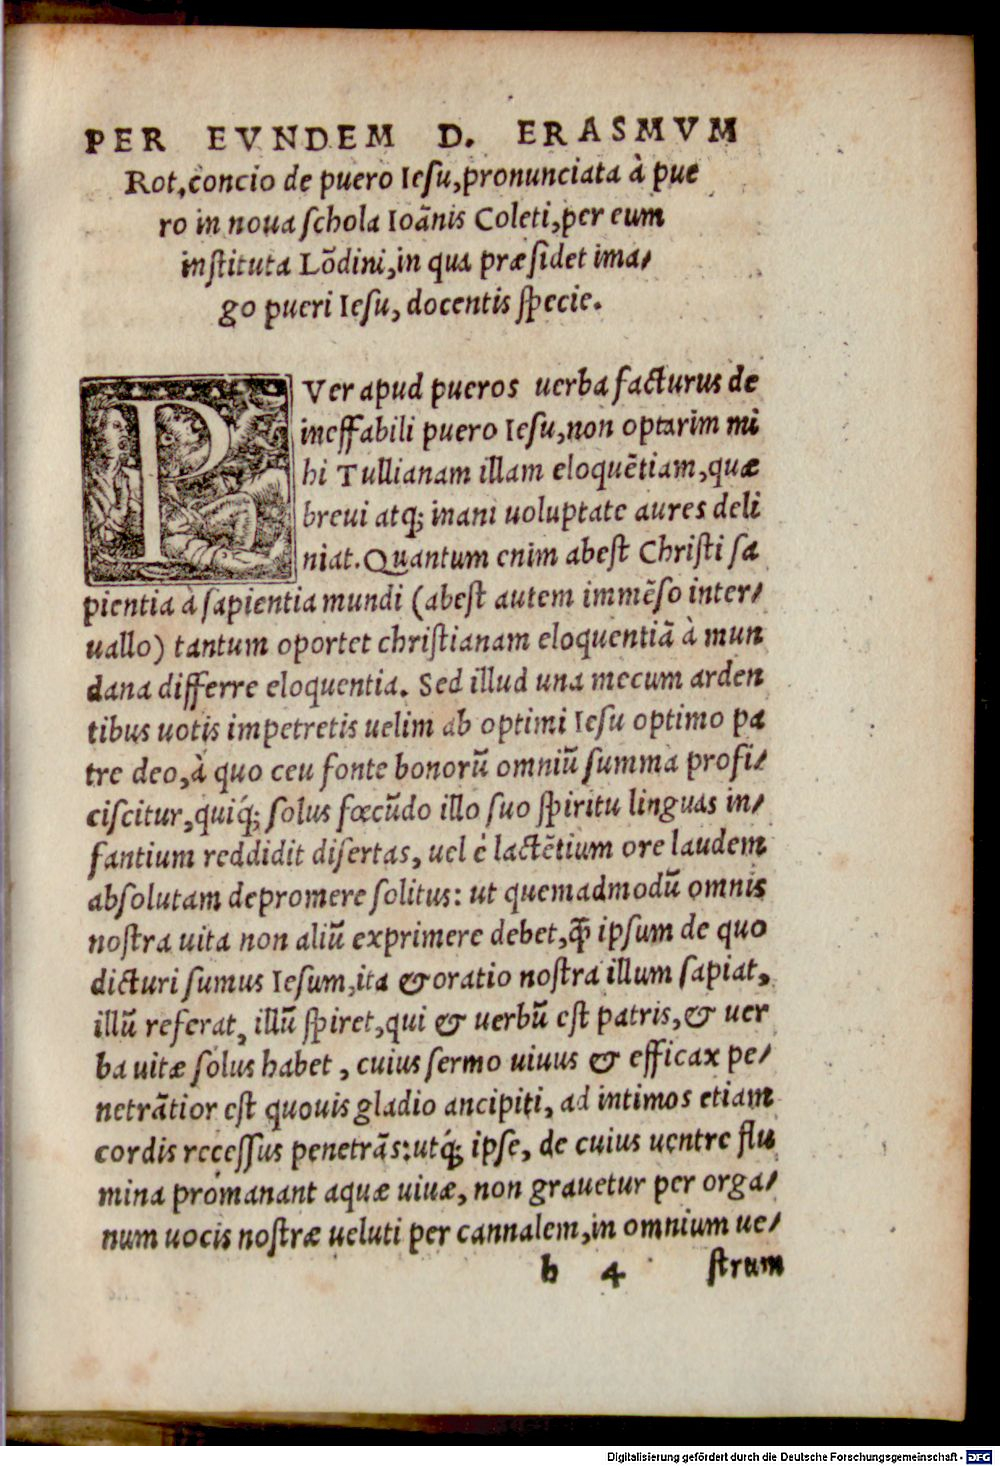 PER EVNDEM D. ERASMVM
Rot. concio de puero Iesu, pronunciata à pue
ro in noua schola Ioãnis Coleti, per eum
instituta Lõdini, in qua præsidet ima/
go pueri Iesu, docentis specie.
PVer apud pueros uerba facturus de
ineffabili puero Iesu, non optarim mi
hi Tullianam illam eloquẽtiam, quæ
breui atq; inani uoluptate aures deli
niat. Quantum enim abest Christi sa
pientia à sapientia mundi (abest autem immẽso inter/
uallo) tantum oportet christianam eloquentiã à mun
dana differre eloquentia. Sed illud una mecum arden
tibus uotis impetretis uelim ab optimi Iesu optimo pa
tre deo, à quo ceu fonte bonorũ omniũ summa profi/
ciscitur, quiq́; solus fœcũdo illo suo spiritu linguas in/
fantium reddidit disertas, uel è lactẽtium ore laudem
absolutam depromere solitus: ut quemadmodũ omnis
nostra uita non aliũ exprimere debet, ꝗ̃ ipsum de quo
dicturi sumus Iesum, ita & oratio nostra illum sapiat,
illũ referat, illũ spiret, qui & uerbũ est patris, & uer
ba uitæ solus habet, cuius sermo uiuus & efficax pe/
netrãtior est quouis gladio ancipiti, ad intimos etiam
cordis recessus penetrãs: utq́; ipse, de cuius uentre flu
mina promanant aquæ uiuæ, non grauetur per orga/
num uocis nostræ ueluti per cannalem, in omnium ue/
b 4 strum
Digitalisierung gefördert durch die Deutsche Forschungsgemeinschaft - DFG